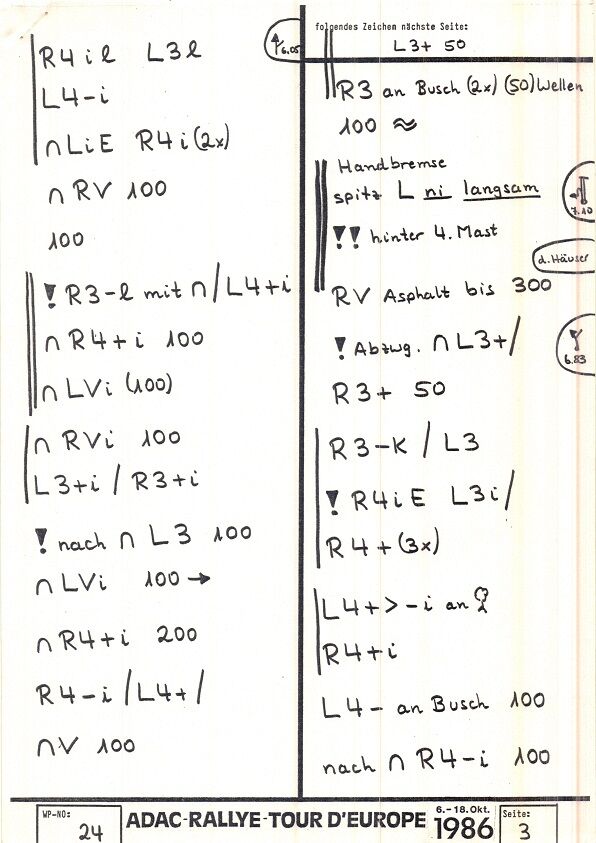 R4 i l L3 l
L4-i
∩ LiE R4 i (2x)
∩ RV 100
100
! R3-l mit ∩ / L4+i
∩ R4+i 100
∩ LVi (100)
∩ RVi 100
L3+i / R3+i
! nach ∩ L3 100
∩ LVi 100 →
∩ R4+i 200
R4-i / L4+ /
∩V 100
6.05
folgendes Zeichen nächste Seite:
L3+ 50
R3 an Busch (2x) (50) Wellen
100 ≈
Handbremse
spitz L ni langsam
7.10
!! hinter 4. Mast
d. Häuser
RV Asphalt bis 300
! Abzwg. ∩ L3+ /
6.83
R3+ 50
R3-K / L3
! R4iE L3i /
R4+ (3x)
L4+>-i an
R4+i
L4- an Busch 100
nach ∩ R4-i 100
WP-NO:
24
ADAC-RALLYE-TOUR D'EUROPE
6.-18.Okt.
1986
Seite:
3